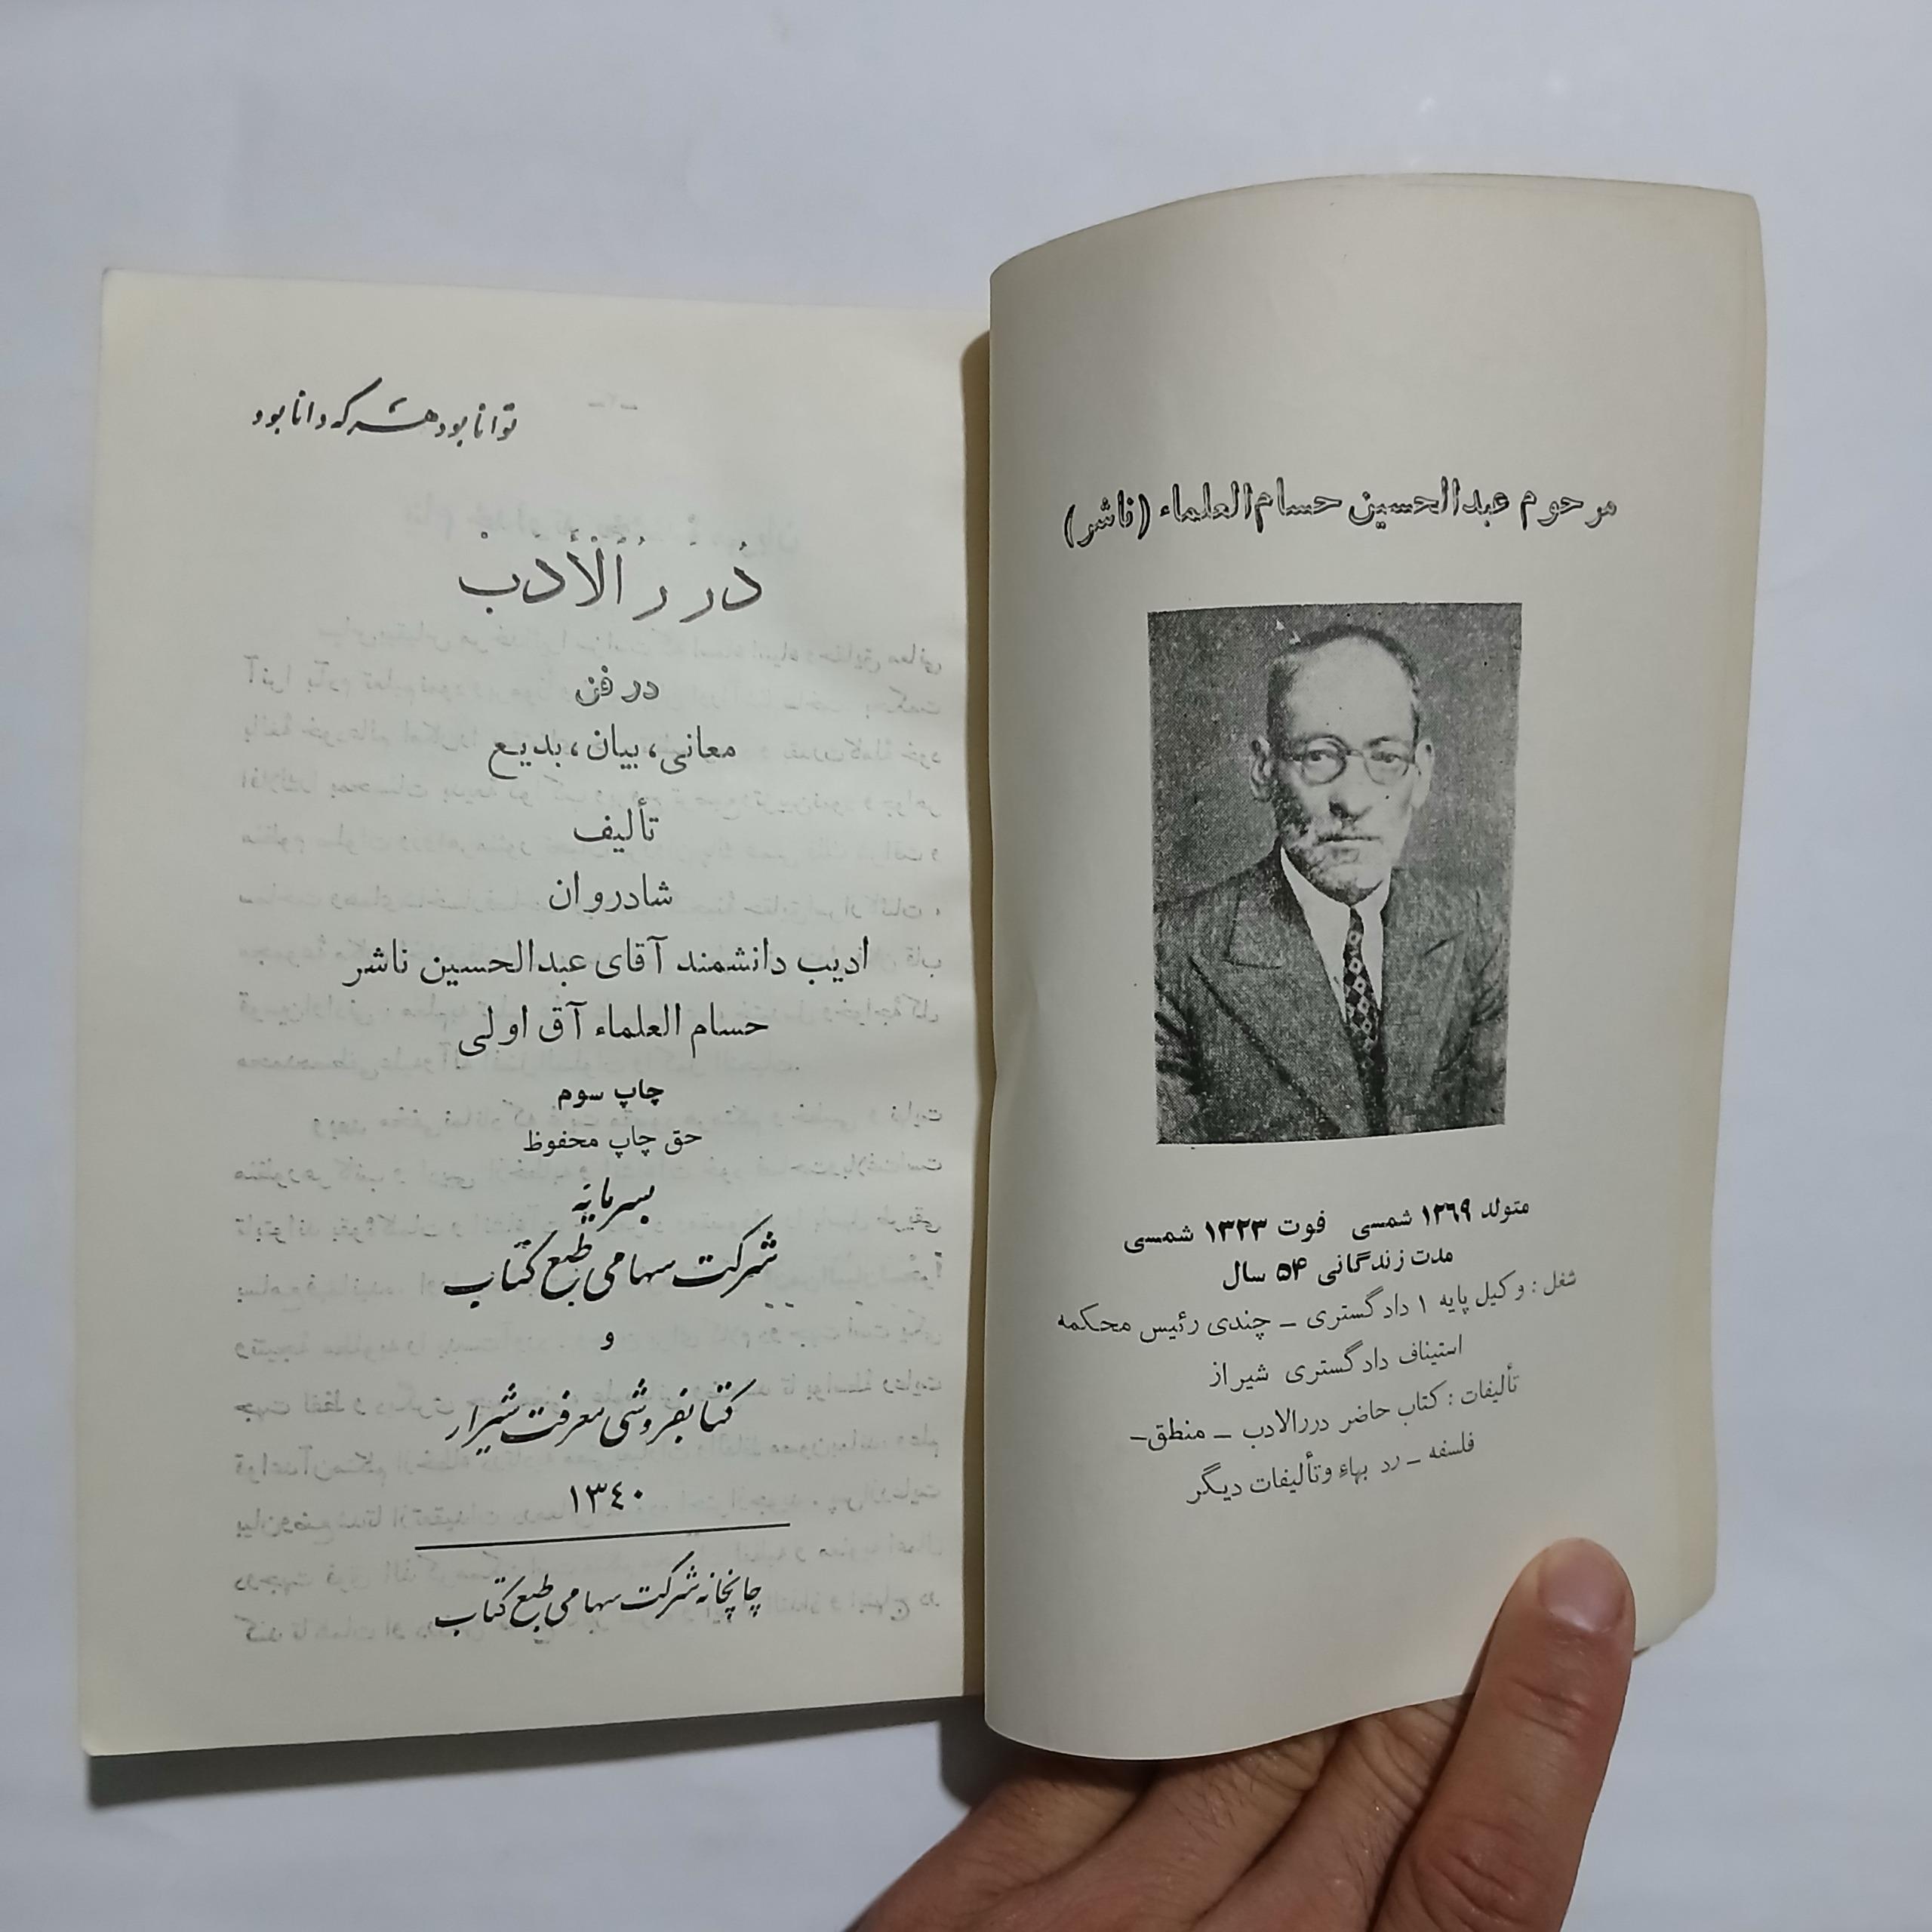 مرحوم عبدالحسین حسام‌العلماء (ناشر)
متولد ۱۲۶۹ شمسی فوت ۱۳۲۳ شمسی
مدت زندگانی ۵۴ سال
شغل : وکیل پایه ۱ دادگستری ــ چندی رئیس محکمه
استیناف دادگستری شیراز
تألیفات : کتاب حاضر دررالادب ــ منطق ــ
فلسفه ــ رد بهاء وتألیفات دیگر
توانا بود هر که دانا بود
دُرَرُ الْأَدَبْ
در فن
معانی ، بیان ، بدیع
تألیف
شادروان
ادیب دانشمند آقای عبدالحسین ناشر
حسام العلماء آق اولی
چاپ سوم
حق چاپ محفوظ
بسرمایه
شرکت سهامی طبع کتاب
و
کتابفروشی معرفت شیراز
۱۳٤۰
چاپخانه شرکت سهامی طبع کتاب